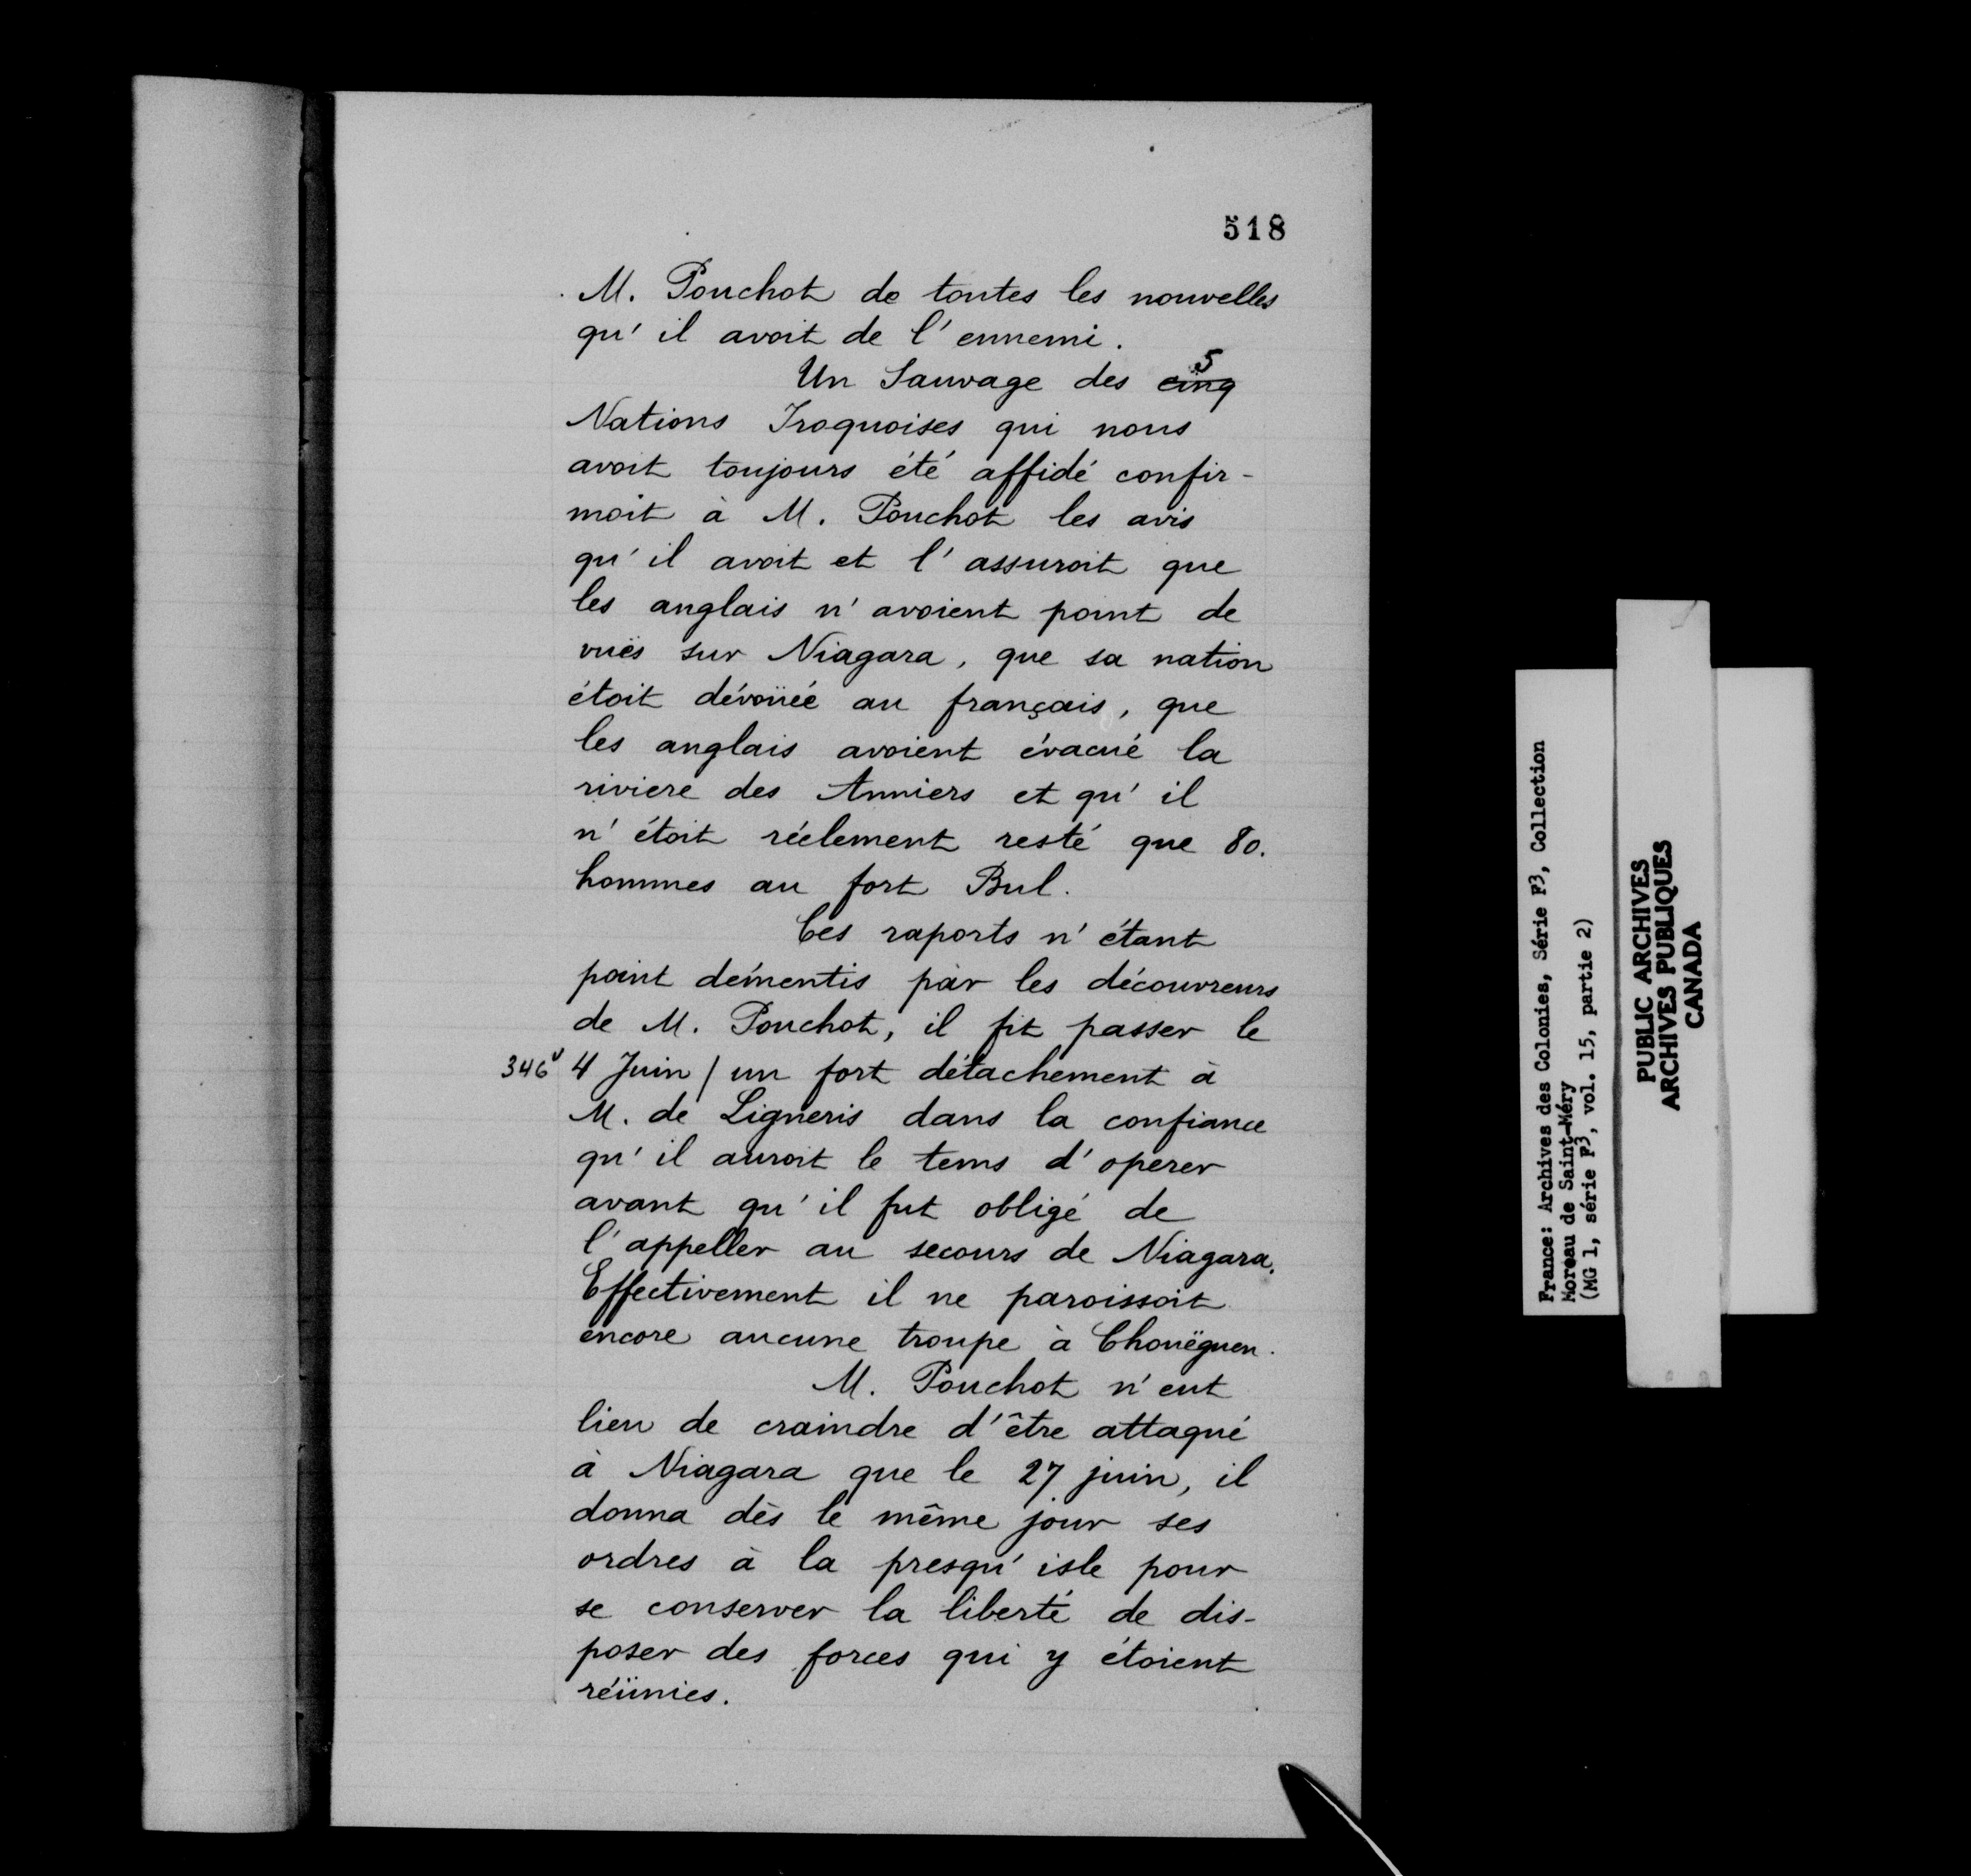 518
M. Pouchot de toutes les nouvelles
qu'il avoit de l'ennemi.
Un Sauvage des cinq 5
Nations Iroquoises qui nous
avoit toujours été affidé confir-
moit à M. Pouchot les avis
qu'il avoit et l'assuroit que
les anglais n'avoient point de
vuës sur Niagara, que sa nation
étoit dévoüée au français, que
les anglais avoient évacué la
riviere des Anniers et qu'il
n'étoit réelement resté que 80.
hommes au fort Bul.
Ces raports n'étant
point démentis par les découvreurs
de M. Pouchot, il fit passer le
346v 4 Juin / un fort détachement à
M. de Ligneris dans la confiance
qu'il auroit le tems d'operer
avant qu'il fut obligé de
l'appeller au secours de Niagara.
Effectivement il ne paroissoit
encore aucune troupe à Chouëguen.
M. Pouchot n'eut
lieu de craindre d'être attaqué
à Niagara que le 27 juin, il
donna dès le même jour ses
ordres à la presqu'isle pour
se conserver la liberté de dis-
poser des forces qui y étoient
réünies.
France: Archives des Colonies, Série F3, Collection
Moreau de Saint-Méry
(MG 1, série F3, vol. 15, partie 2)
PUBLIC ARCHIVES
ARCHIVES PUBLIQUES
CANADA